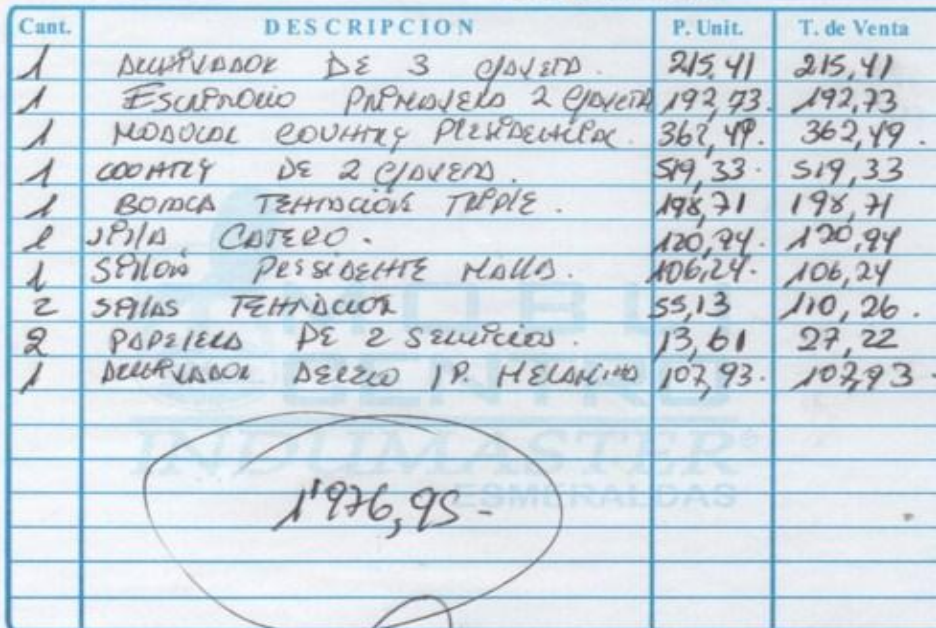 Cant. DESCRIPCION P. Unit. T. de Venta
1 ARCHIVADOR DE 3 GAVETA. 215,41 215,41
1 ESCRITORIO PRIMAVERA 2 GAVETA 192,73. 192,73
1 MODULAR COUNTRY PRESIDENCIAL. 362,49. 362,49.
1 COUNTRY DE 2 GAVETA. 519,33. 519,33
1 BUTACA TENTACION TRIPLE. 198,71 198,71
1 SILLA CAJERO. 120,94. 120,94
1 SILLON PRESIDENTE MALLA. 106,24. 106,24
2 SILLAS TENTACION 55,13 110,26.
2 PAPELERA DE 2 SERVICIOS. 13,61 27,22
1 ARCHIVADOR AEREO 1P. MELAMINA 107,93. 107,93.
CENTRO
INDUMASTER®
ESMERALDAS
1'976,95-